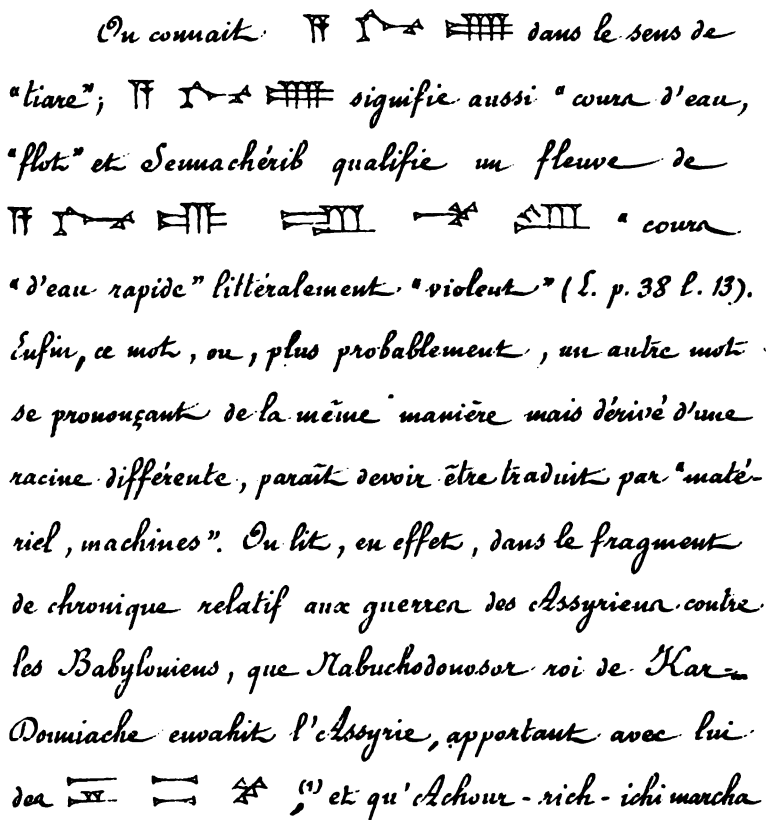 On connait dans le sens de
"tiare"; signifie aussi "cours d'eau,
"flot" et Sennachérib qualifie un fleuve de
"cours
"d'eau rapide" littéralement "violent" (L. p. 38 l. 13).
Enfin, ce mot, ou, plus probablement, un autre mot
se prononçant de la même manière mais dérivé d'une
racine différente, paraît devoir être traduit par "maté-
riel, machines". On lit, en effet, dans le fragment
de chronique relatif aux guerres des Assyriens contre
les Babyloniens, que Nabuchodonosor roi de Kar-
Douniache envahit l'Assyrie, apportant avec lui
des ,(1) et qu'Achour-rich-ichi marcha